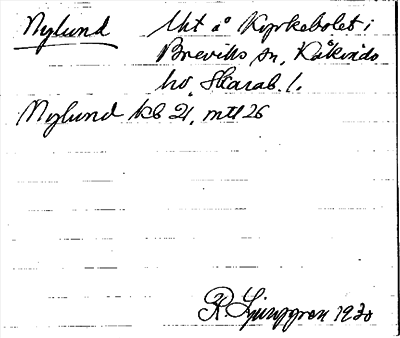 Nylund lht å Kyrkebolet i
Breviks sn, Kåkinds
hd, Skarab. l.
Nylund kb 21, mtl 26
R. Ljunggren 1930